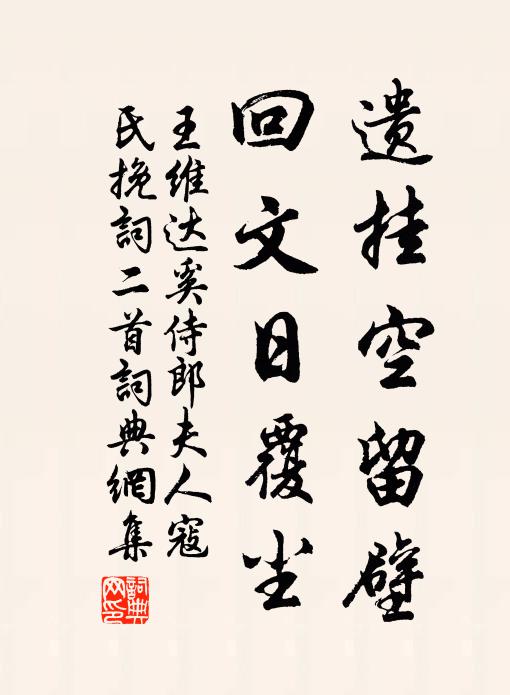 遗挂空留壁
回文日覆尘
王维达奚侍郎夫人寇
氏挽詞二首詞典網集
詞典网印